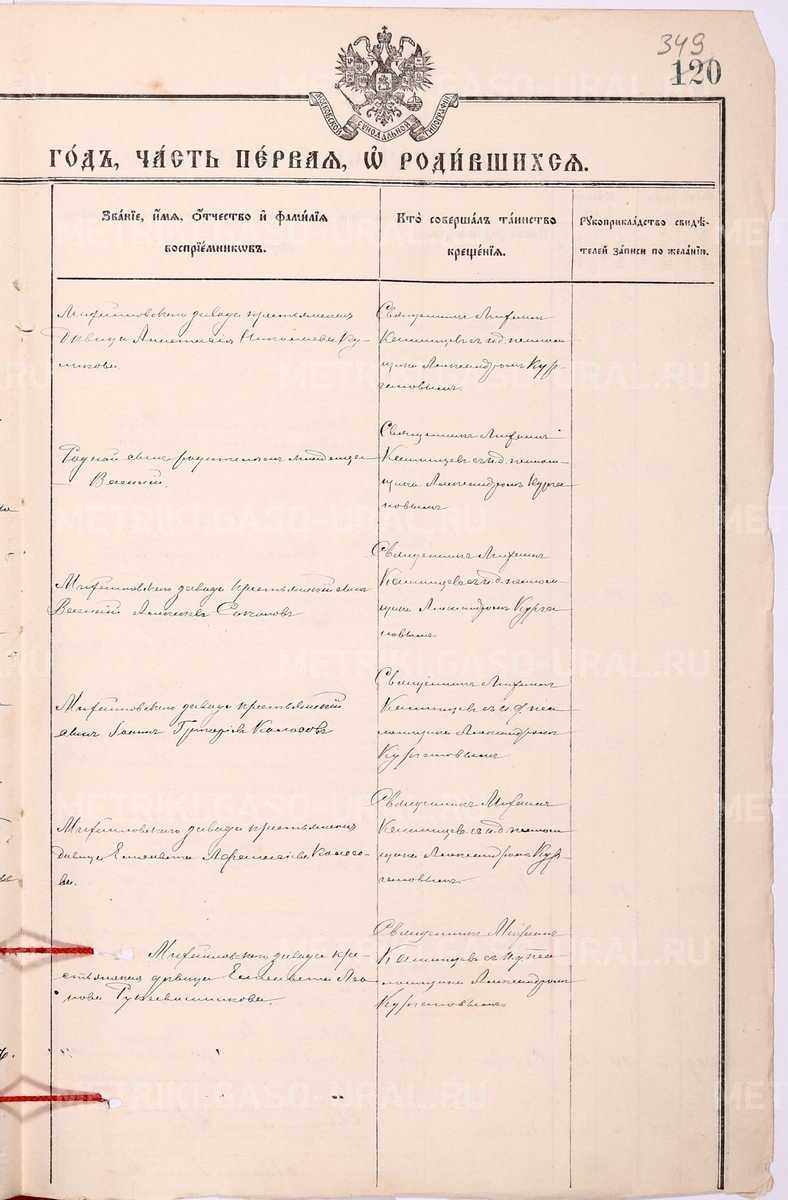 349
120
МОСКОВСКОЙ СѴНОДАЛЬНОЙ ТИПОГРАФІИ
ГО́ДЪ, ЧА́СТЬ ПЕ́РВАЯ, Ѡ҆ РОДИ́ВШИХСЯ.
Зва́нїе, и҆́мя, ѻ҆́тчество и҆ фамі́лїя
воспрїе́мникѡвъ.
Кто̀ соверша́лъ та́инство
креще́нїя.
Рꙋкоприкла́дство свидѣ́-
телей за́писи по жела́нїю.
Михайловскаго завода крестьянская
дѣвица Анастасія Николаева Ку-
ликова.
Священникъ Михаилъ
Кашинцевъ съ и. д. псалом-
щика Александромъ Кур-
гановымъ.
Родной сынъ родителямъ младенца
Василій.
Священникъ Михаилъ
Кашинцевъ съ и. д. псалом-
щика Александромъ Курга-
новымъ
Михайловскаго завода крестьянскій сынъ
Василій Алексѣевъ Соколовъ
Священникъ Михаилъ
Кашинцевъ съ и. д. псалом-
щика Александромъ Курга-
новымъ.
Михайловскаго завода крестьянскій
сынъ Іоаннъ Григоріевъ Колосовъ
Священникъ Михаилъ
Кашинцевъ съ и. д. пса-
ломщика Александромъ
Кургановымъ
Михайловскаго завода крестьянская
дѣвица Елизавета
ва.
Священникъ Михаилъ
Кашинцевъ съ и. д. псалом-
щика Александромъ Кур-
гановымъ.
Михайловскаго завода кре-
стьянская дѣвица Елизавета
Священникъ Михаилъ
Кашинцевъ съ и. д. пса-
ломщика Александромъ
Кургановымъ.
METRIKI.GASO-URAL.RU